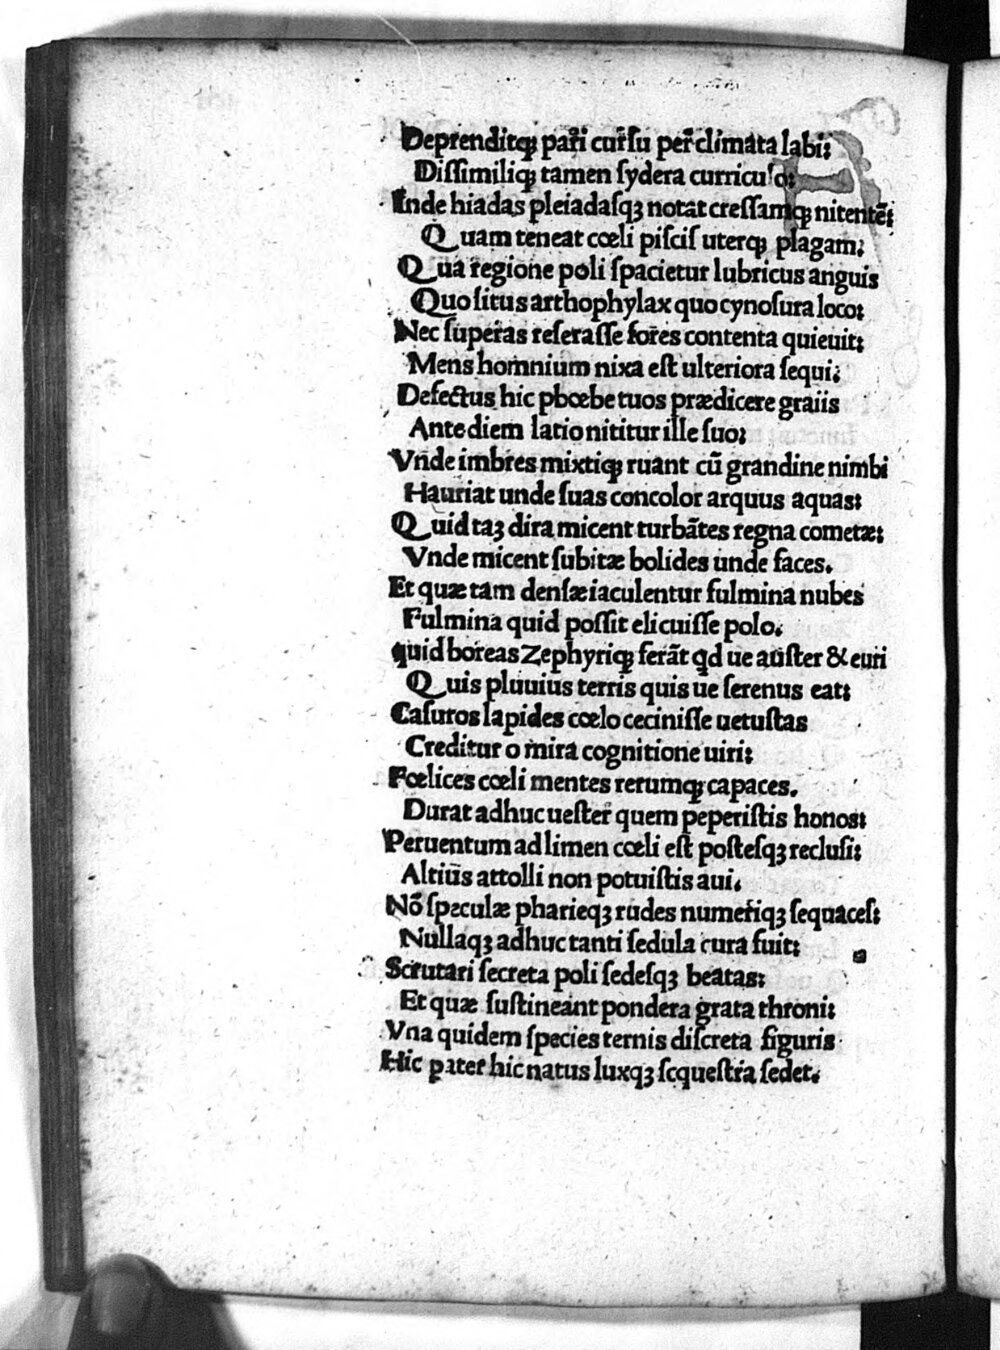 Deprenditqꝫ pari cursu per climata labi:
Dissimiliqꝫ tamen sydera curriculo:
Inde hiadas pleiadasqꝫ notat cressamqꝫ nitentē:
Quam teneat cœli piscis uterqꝫ plagam:
Qua regione poli spacietur lubricus anguis
Quo situs arthophylax quo cynosura loco:
Nec superas reserasse fores contenta quieuit:
Mens homnium nixa est ulteriora sequi:
Defectus hic phœbe tuos prædicere graiis
Ante diem latio nititur ille suo:
Vnde imbres mixtiqꝫ ruant cū grandine nimbi
Hauriat unde suas concolor arquus aquas:
Quid taꝫ dira micent turbātes regna cometæ:
Vnde micent subitæ bolides unde faces.
Et quæ tam densæ iaculentur fulmina nubes
Fulmina quid possit elicuisse polo.
quid boreas Zephyriqꝫ ferāt qd ue auster & euri
Quis pluuius terris quis ue serenus eat:
Casuros lapides cœlo cecinisse uetustas
Creditur o mira cognitione uiri:
Fœlices cœli mentes rerumqꝫ capaces.
Durat adhuc uester quem peperistis honos:
Peruentum ad limen cœli est postesqꝫ reclusi:
Altius attolli non potuistis aui.
Nō speculæ pharieqꝫ rudes numeriqꝫ sequaces:
Nullaqꝫ adhuc tanti sedula cura fuit:
Scrutari secreta poli sedesqꝫ beatas:
Et quæ sustineant pondera grata throni:
Vna quidem species ternis discreta figuris
Hic pater hic natus luxqꝫ sequestra sedet.